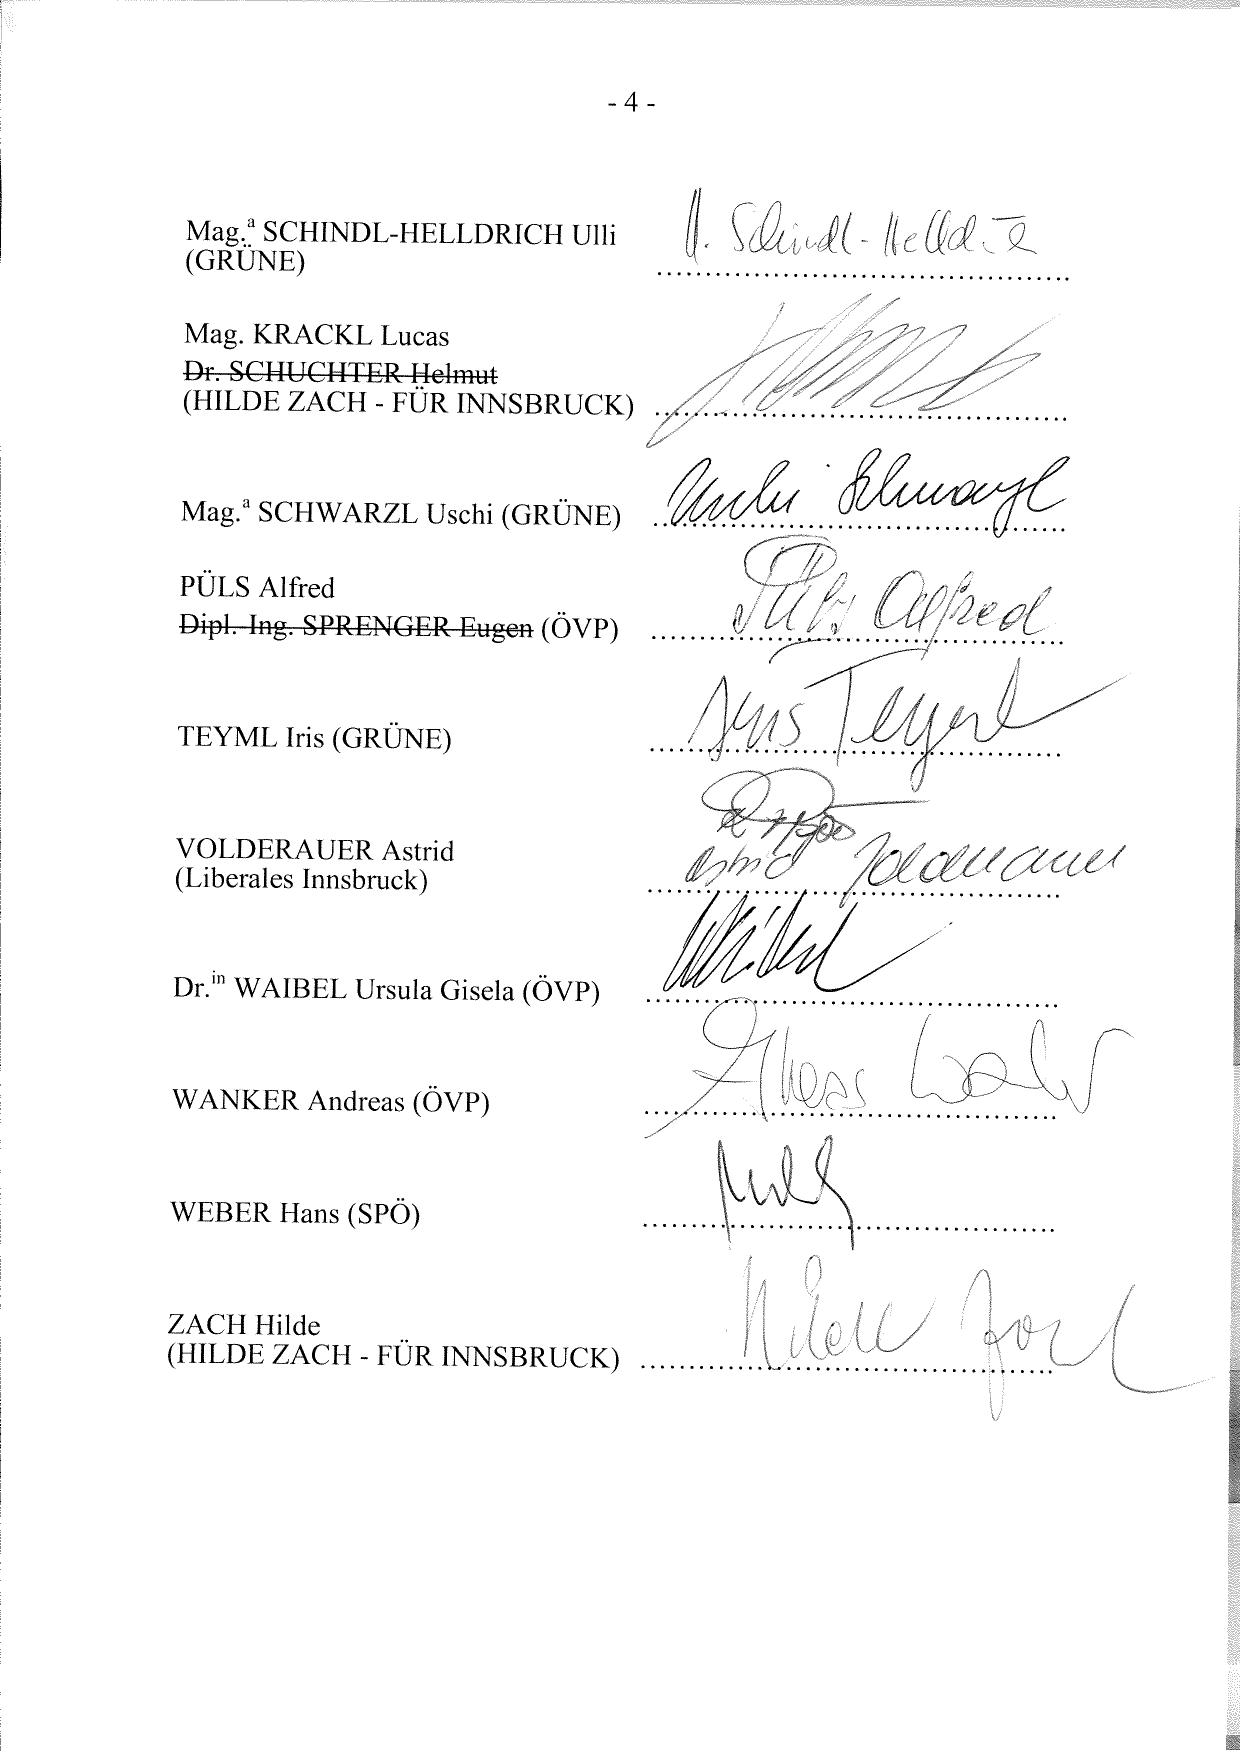 - 4 -
Mag.ª SCHINDL-HELLDRICH Ulli
(GRÜNE)
Schindl-Helld
Mag. KRACKL Lucas
Dr. SCHUCHTER Helmut
(HILDE ZACH - FÜR INNSBRUCK)
Mag.ª SCHWARZL Uschi (GRÜNE)
Uschi Schwarzl
PÜLS Alfred
Dipl.-Ing. SPRENGER Eugen (ÖVP)
Püls Alfred
TEYML Iris (GRÜNE)
Iris Teyml
VOLDERAUER Astrid
(Liberales Innsbruck)
Astrid Volderauer
Dr.ⁱⁿ WAIBEL Ursula Gisela (ÖVP)
Waibel
WANKER Andreas (ÖVP)
WEBER Hans (SPÖ)
ZACH Hilde
(HILDE ZACH - FÜR INNSBRUCK)
Hilde Zach